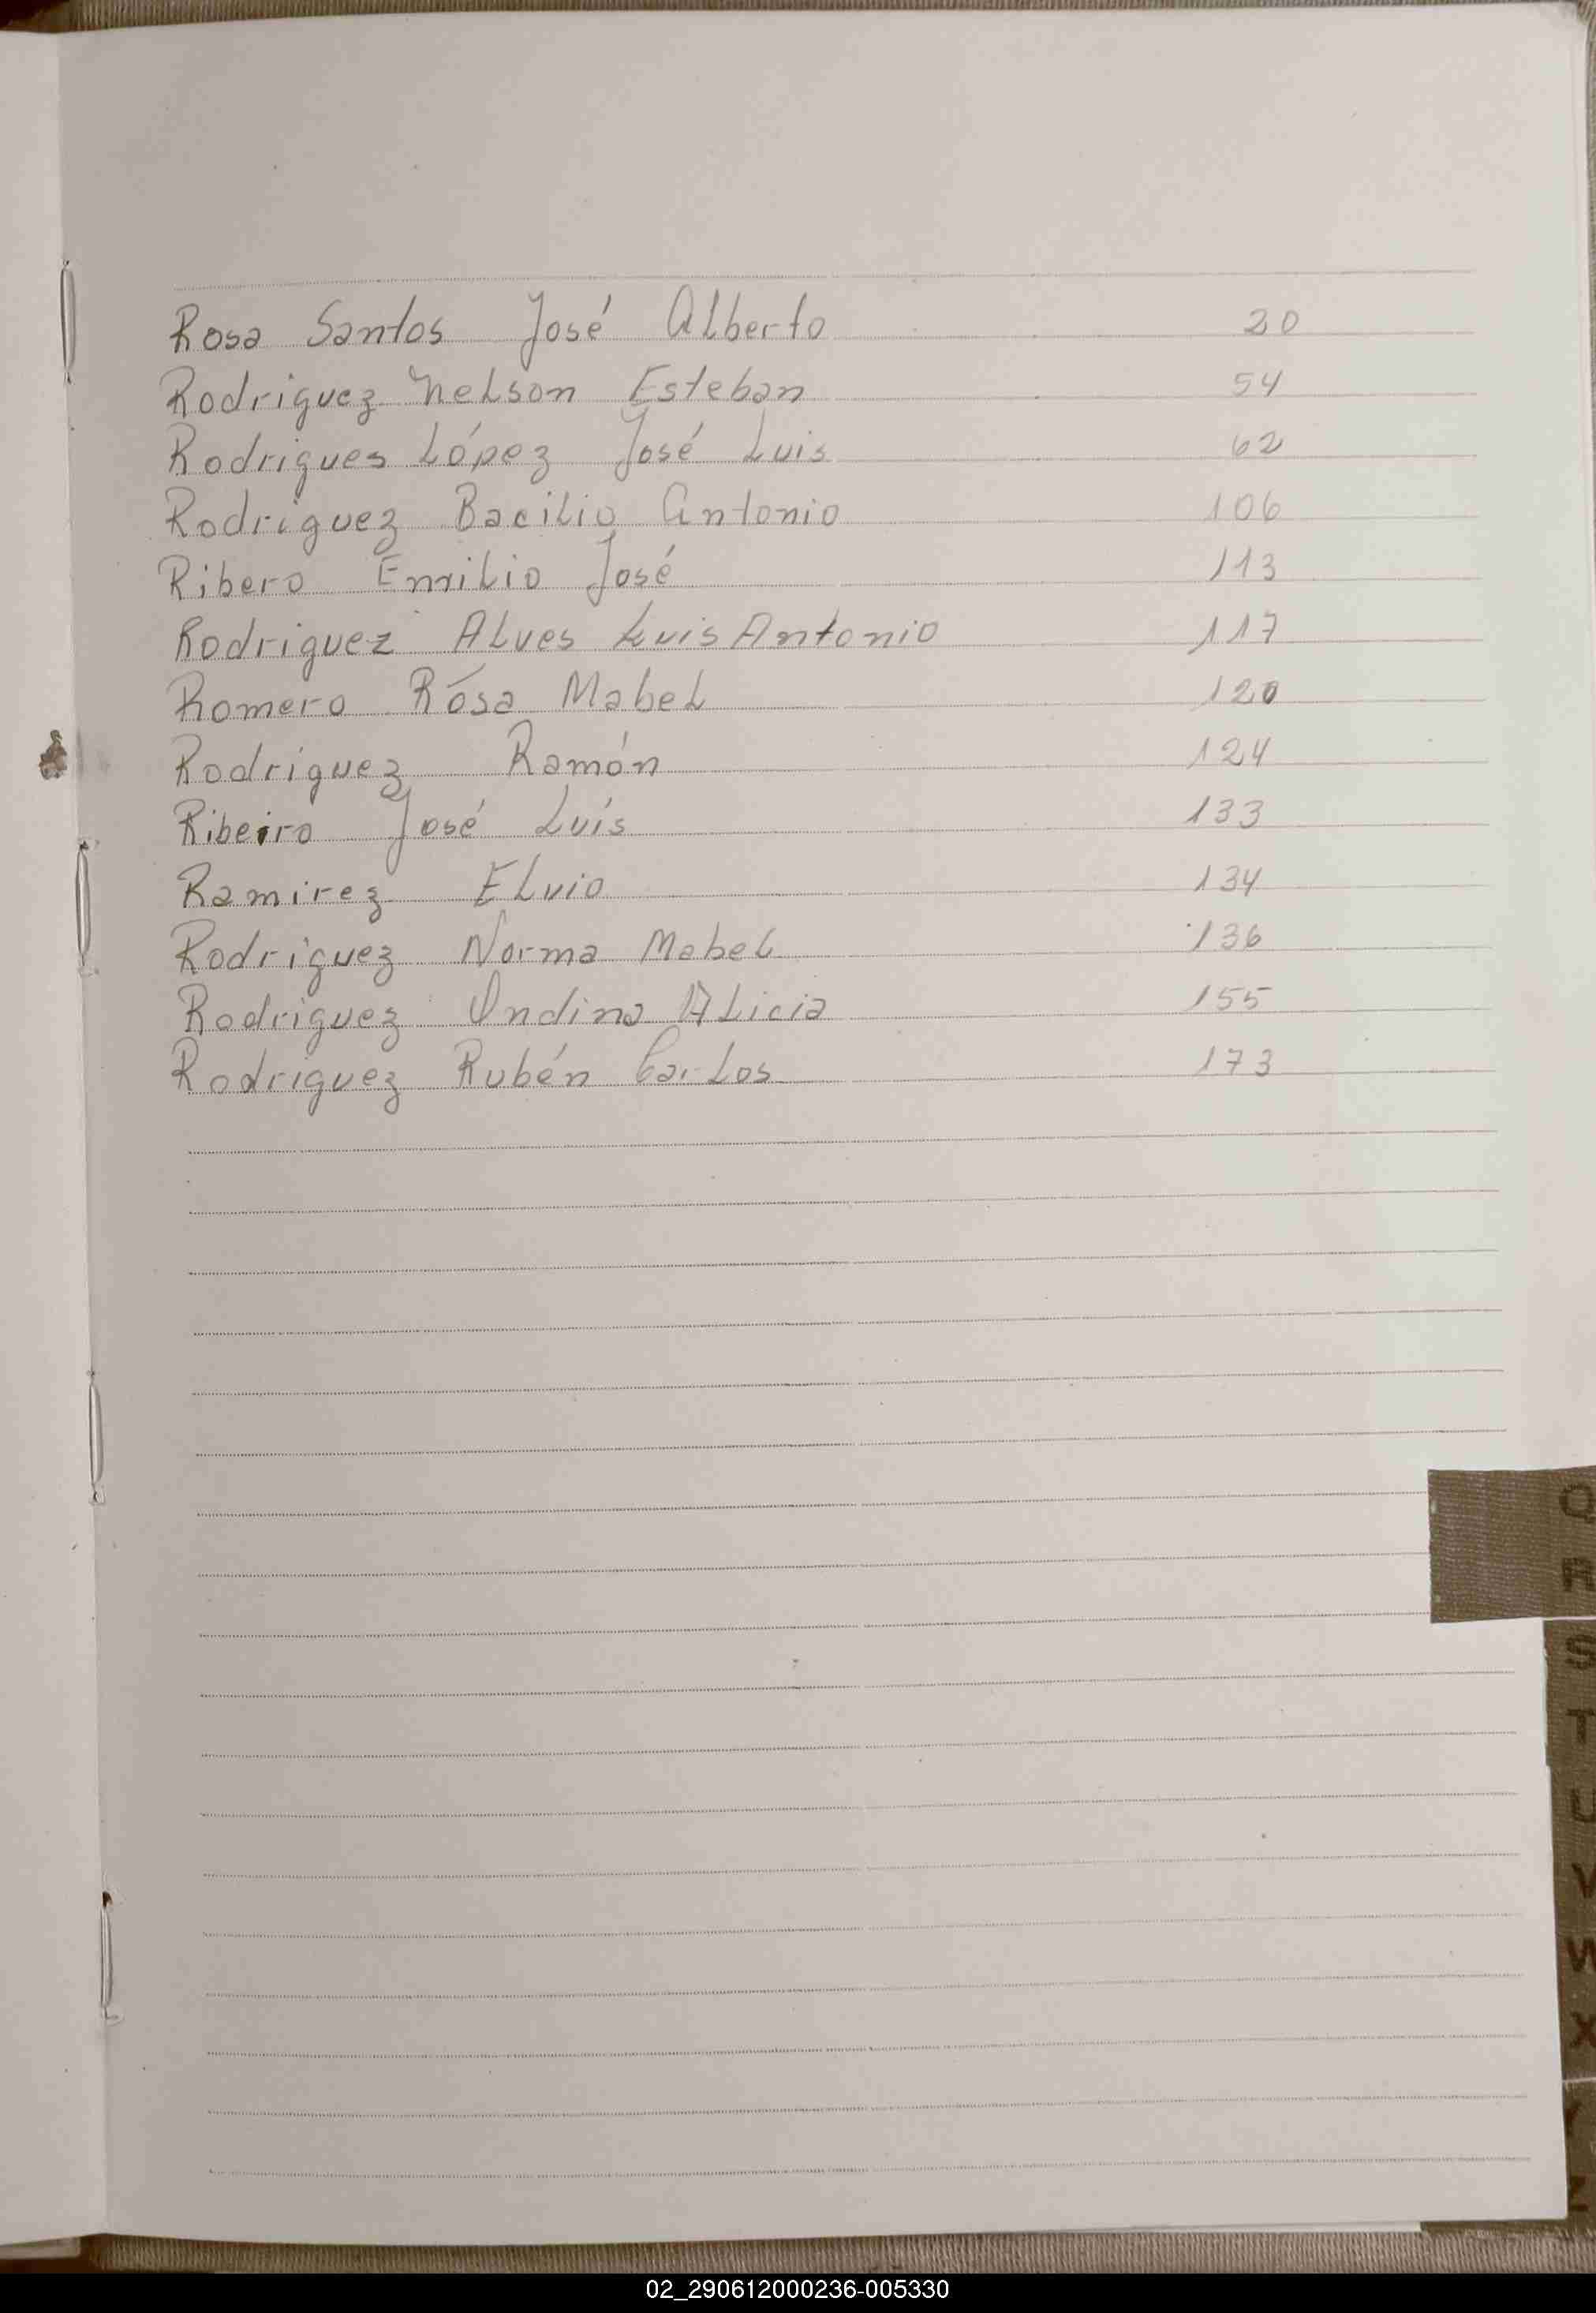 Rosa Santos José Alberto 20
Rodriguez Nelson Esteban 54
Rodrigues López José Luis 62
Rodriguez Bacilio Antonio 106
Ribero Emilio José 113
Rodriguez Alves Luis Antonio 117
Romero Rosa Mabel 120
Rodriguez Ramón 124
Ribeiro José Luis 133
Ramirez Elvio 134
Rodriguez Norma Mabel 136
Rodriguez Ondina Alicia 155
Rodriguez Rubén Carlos 173
Q
R
S
T
U
V
W
X
Y
Z
02_290612000236-005330